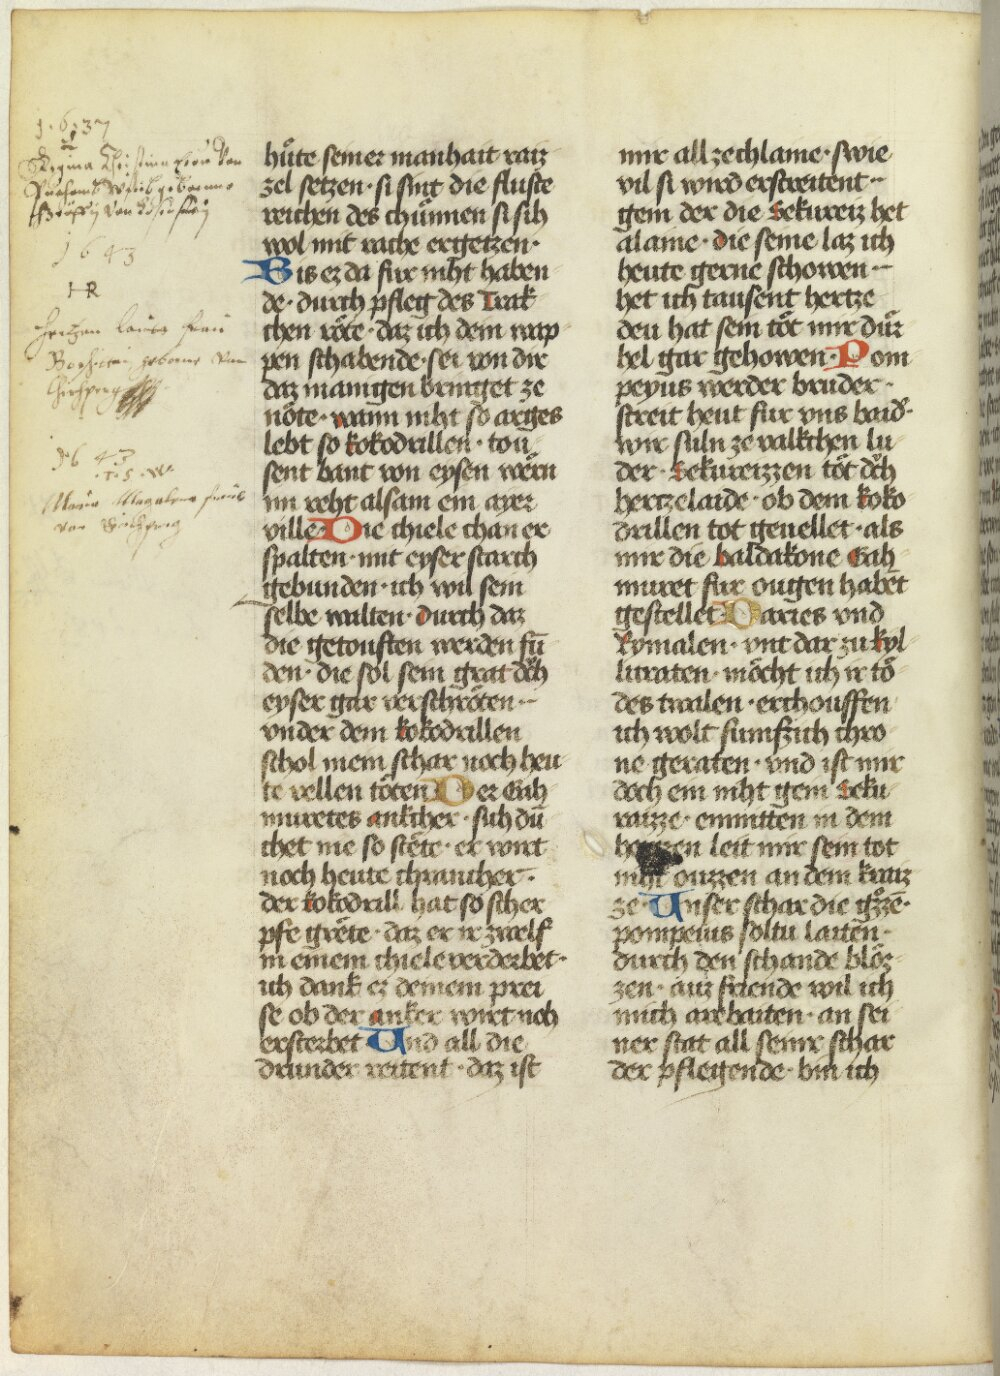 1637
Regina Christina frau von
1643
HR
1643
hůte seiner manhait raiz
zel setzen · si sint die fluste
reichen des chůnnen si sih
wol mit rache ergetzen ·
Bis er da fur niht haben
de · durch pfleg des Trak
chen rôte · daz ich dem rap
pen schabende · sei von dir
daz manigen bringet ze
nôte · wann niht so arges
lebt so kokodrillen · tou
sent bant von eysen wêrn
im reht alsam ein ayer
ville · Die chiele chan er
spalten · mit eyser starch
gebunden · ich wil sein
selbe walten · durch daz
die getouften werden fū
den · die sol sein grat důh
eyser gar verschrôten ·
vnder dem kokodrillen
schol mein schar noch heu
te vellen tôten Der Gah
muretes ankcher · suh dū
chet nie so stête · er wirt
noch heute chrancher ·
der kokodrill hat so scher
pfe grête · daz er ir zwelf
in einem chiele verderbet ·
ich dank er deinem prei
se ob der anker wirt noh
ersterbet Und all die
drunder reitent · daz ist
mir all ze chlaine · swie
vil si wird erstreitent ·
gein der die Sekureiz het
alaine · die seine laz ich
heute gerne schowen ·
het ich tausent hertze
deu hat sein tôt mir důr
hel gar gehowen · Pom
peyus werder bruder ·
streit heut fur vns baid ·
wir suln ze valkchen lu
der · Sekureizzen tôt důh
hertzelaide · ob dem koko
drillen tot geuellet · als
mir die baldakone Gah
muret fur ougen habēt
gestellet Daries vnd
kymalen · vnt dar zu kyl
licraten · môcht ich ir tô
des twalen · erchouffen
ich wolt fumfzich chro
ne geraten · vnd ist mir
doch ein niht gein Seku
raizze · enmitten in dem
hertzen leit mir sein tot
niht ouzzen an dem kraiz
ze · Unser schar die grôzzē ·
pompeius soltu laiten ·
durch den schande blôz
zen · auz friende wil ich
mich arebaiten · an sei
ner stat all seinr schar
der pflegende · bin ich